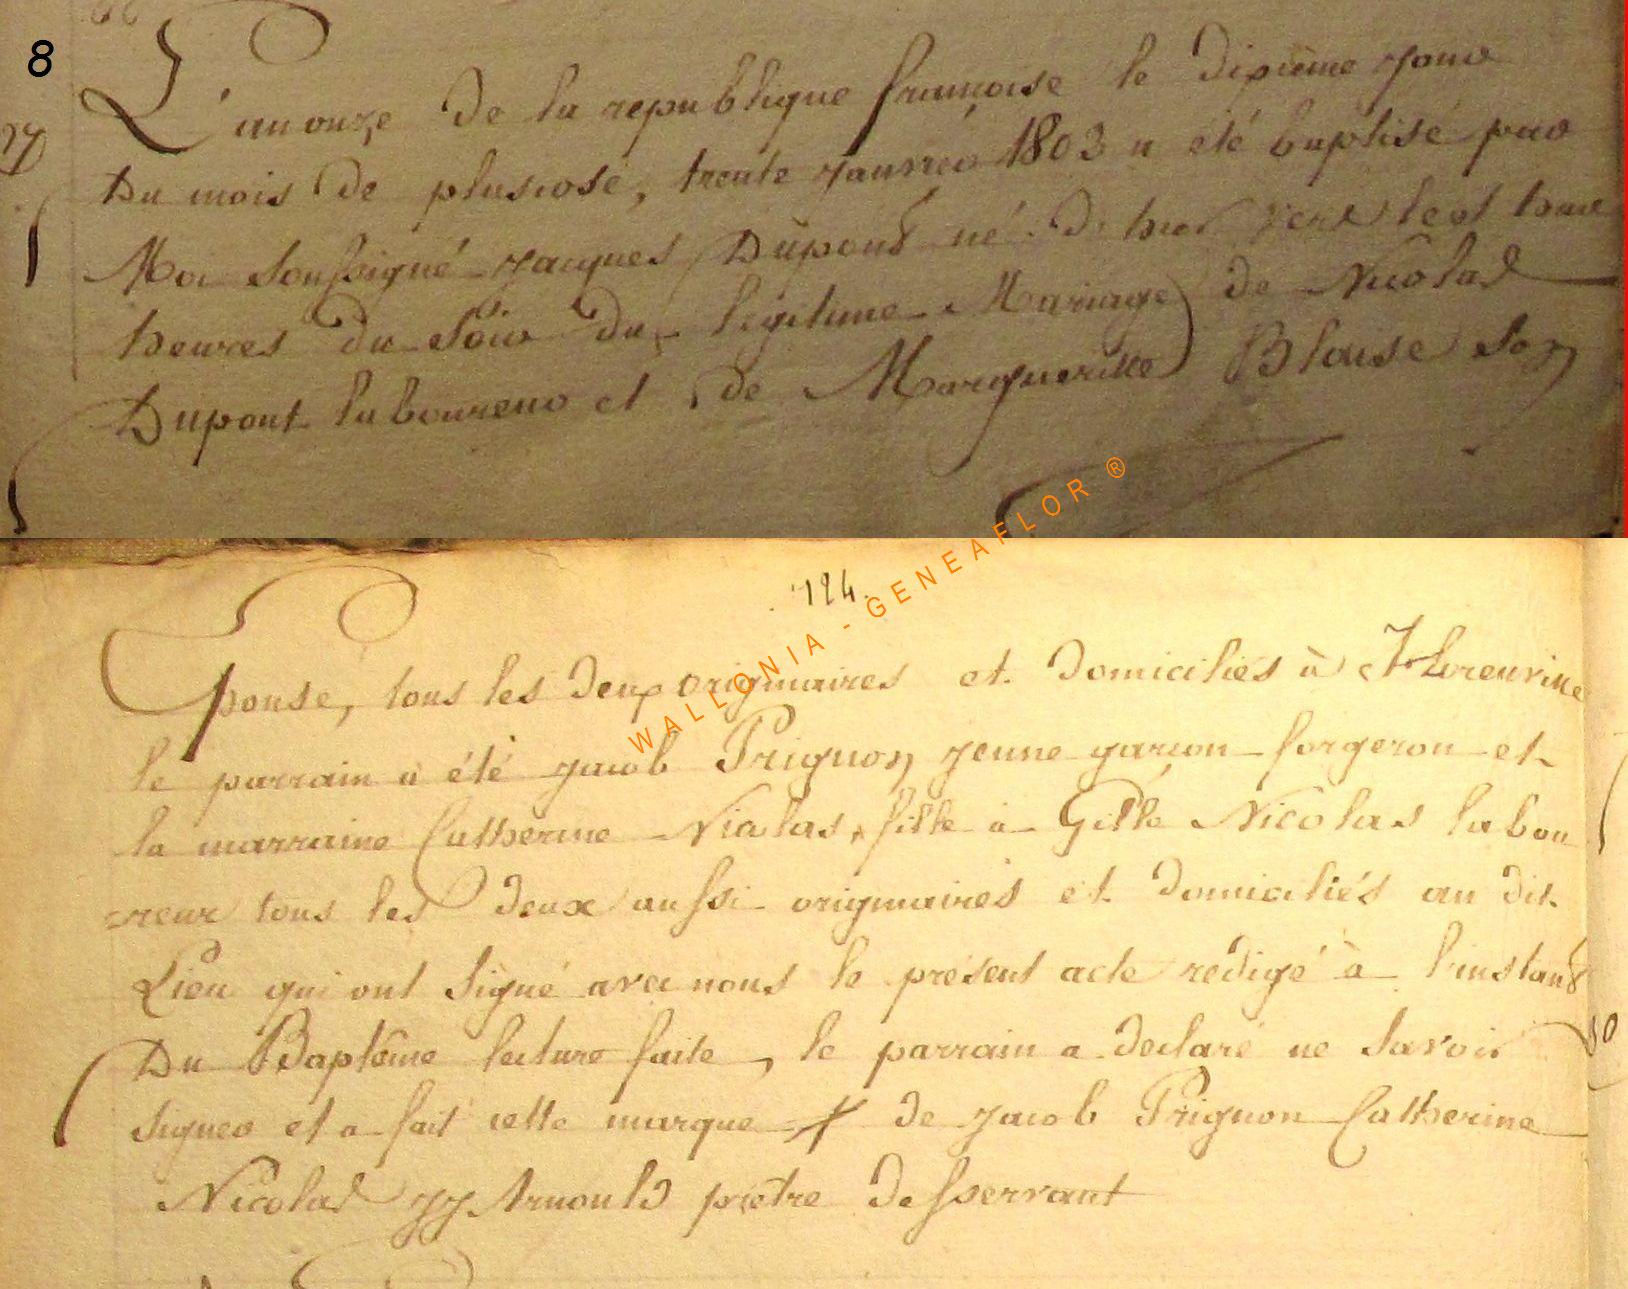 8
27
L'an onze de la republique françoise le dixième jour
Du mois de pluviose, trente janvier 1803 a été baptisé par
Moi soussigné jacques Dupont né de hier vers les huit
heures du Soir du legitime Mariage de Nicolas
Dupont laboureur et de Marguerille Blaise Son
124.
pouse, tous les deux originaires et Domiciliés à
le parrain a été jacob Prignon jeune garcon forgeron et
la marraine Catherine Nicolas, fille a Gille Nicolas labou
reur tous les deux aussi originaires et Domiciliés au dit
Lieu qui ont Signé avec nous le présent acte redigé à l'instant
Du Baptême lecture faite, le parrain a déclaré ne Savoir
Signer et a fait cette marque de jacob Prignon Catherine
Nicolas JJ Arnould prêtre desservant
WALLONIA - GENEAFLOR ®